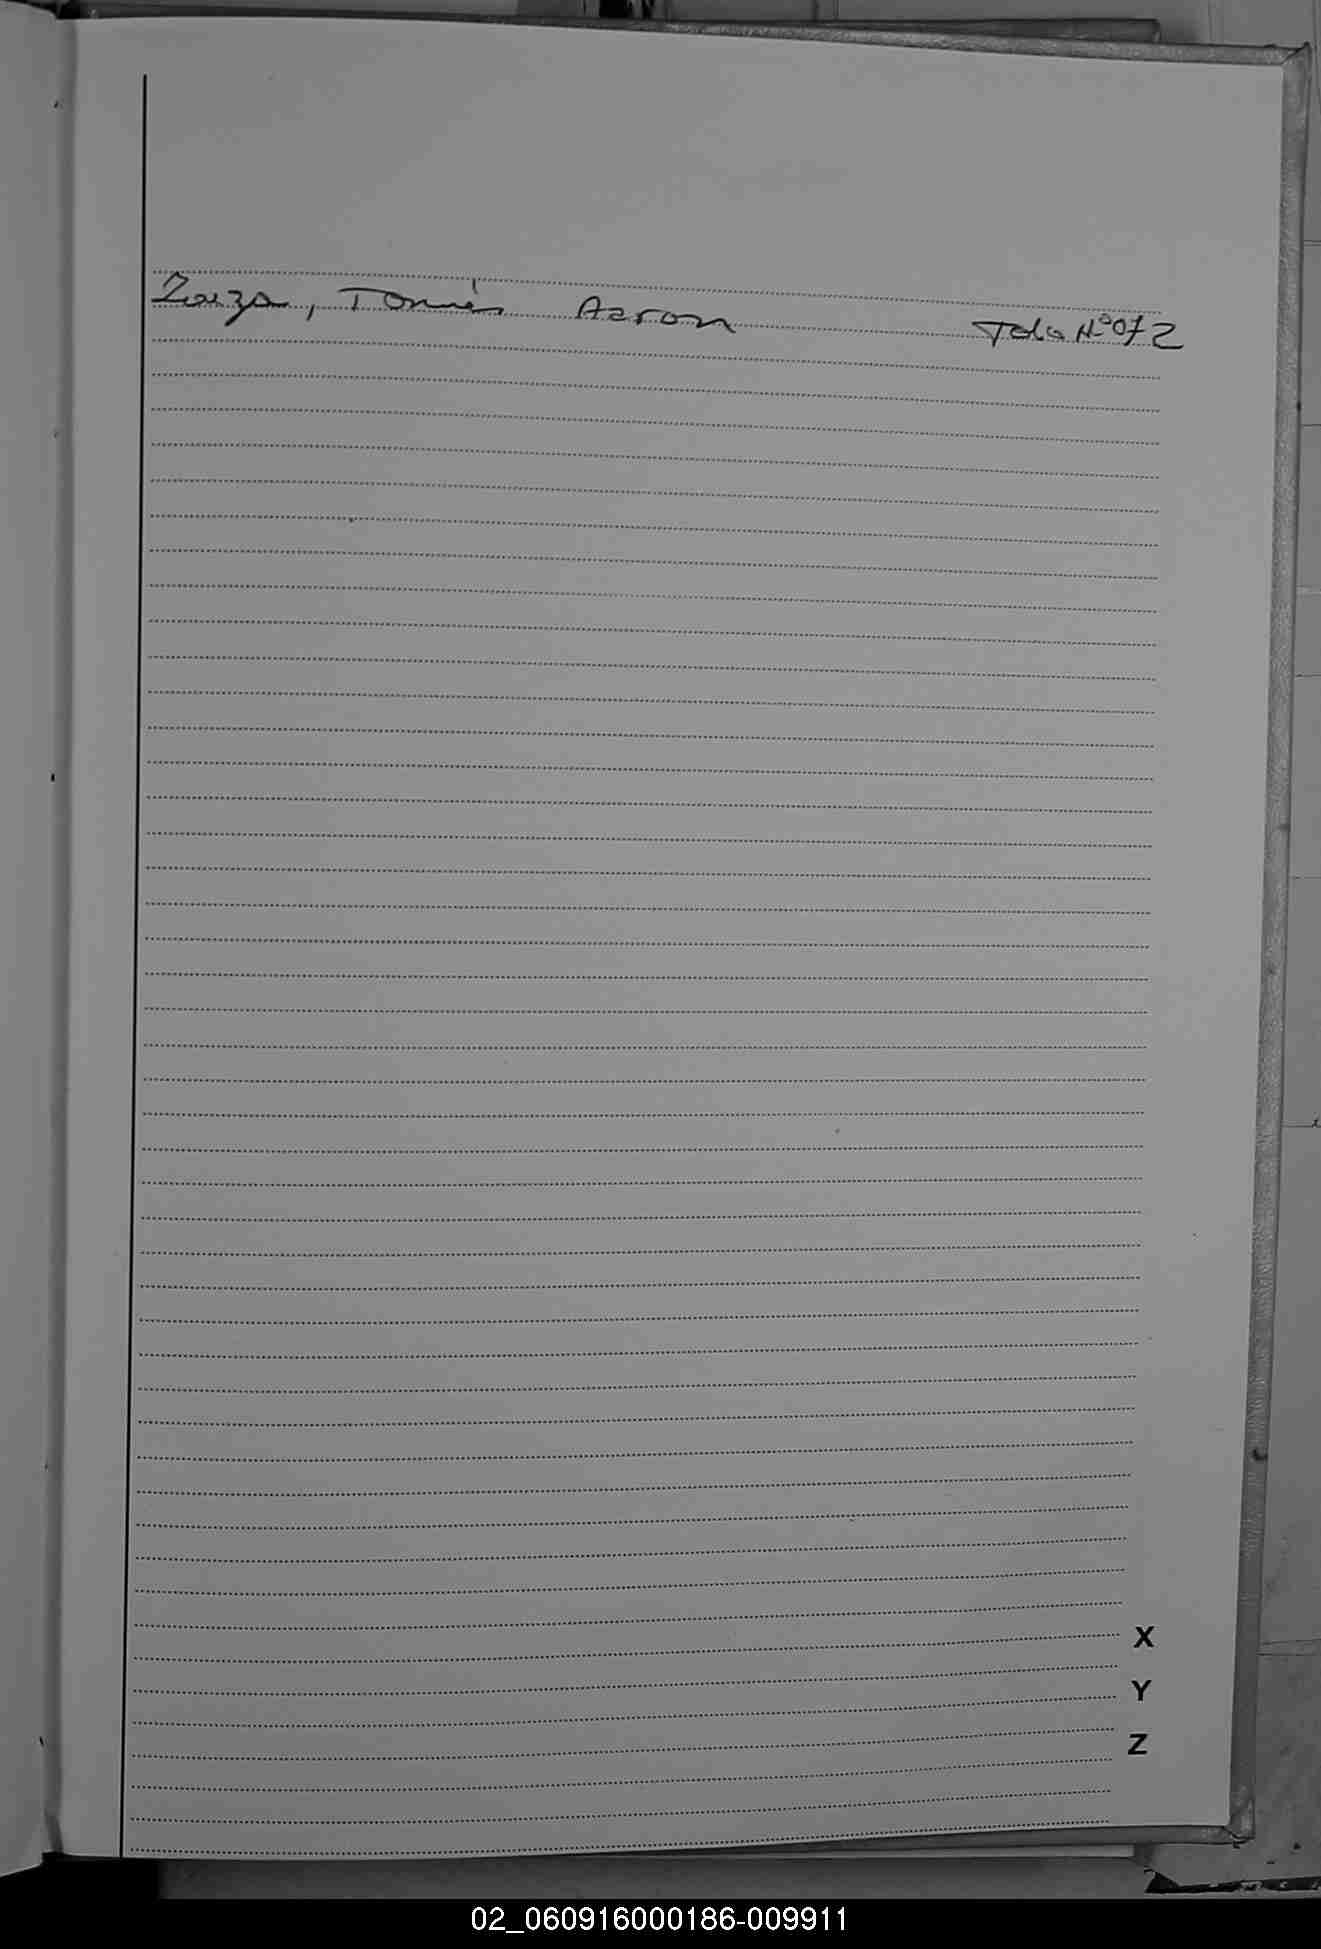 Zarza, Tomás Aaron Folio Nº 072
X
Y
Z
02_060916000186-009911